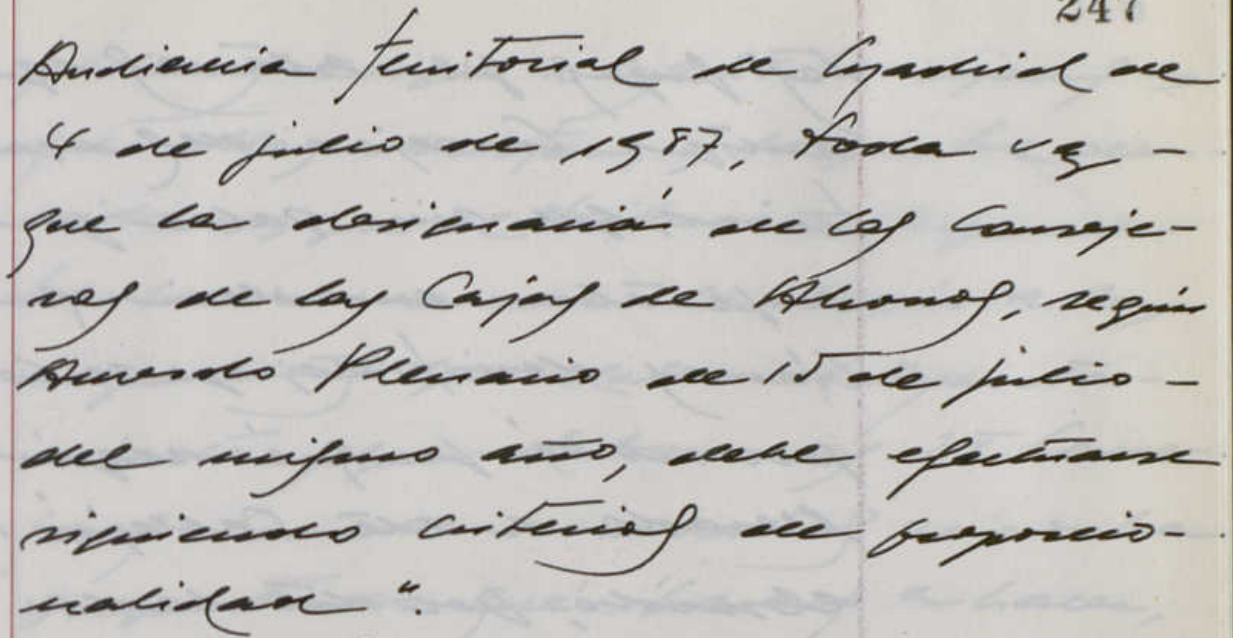 247
Audiencia Territorial de Madrid de
4 de julio de 1987, toda vez -
que la designación de los Conseje-
ros de las Cajas de Ahorros, según
Acuerdo Plenario de 15 de julio -
del mismo año, debe efectuarse
siguiendo criterios de proporcio-
nalidad".